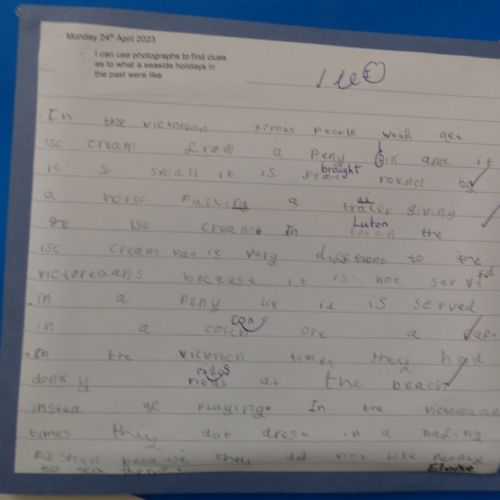 Monday 24th April 2023
- I can use photographs to find clues
as to what a seaside holidays in
the past were like.
In the victorean times people woah get
isc cream fram a peny lik and it
is so small it is brought round by
a horse pulling a trailer giving
isc cream. In Luton the
isc cream van is very different to the
victoreaans because it is not servt
in a peny lik it is served
in a cons ore a
In the victoreen times they had
donky rides at the beach
insted of playing. In the victorean
times they dot drest in a
because they did not like people
to sea